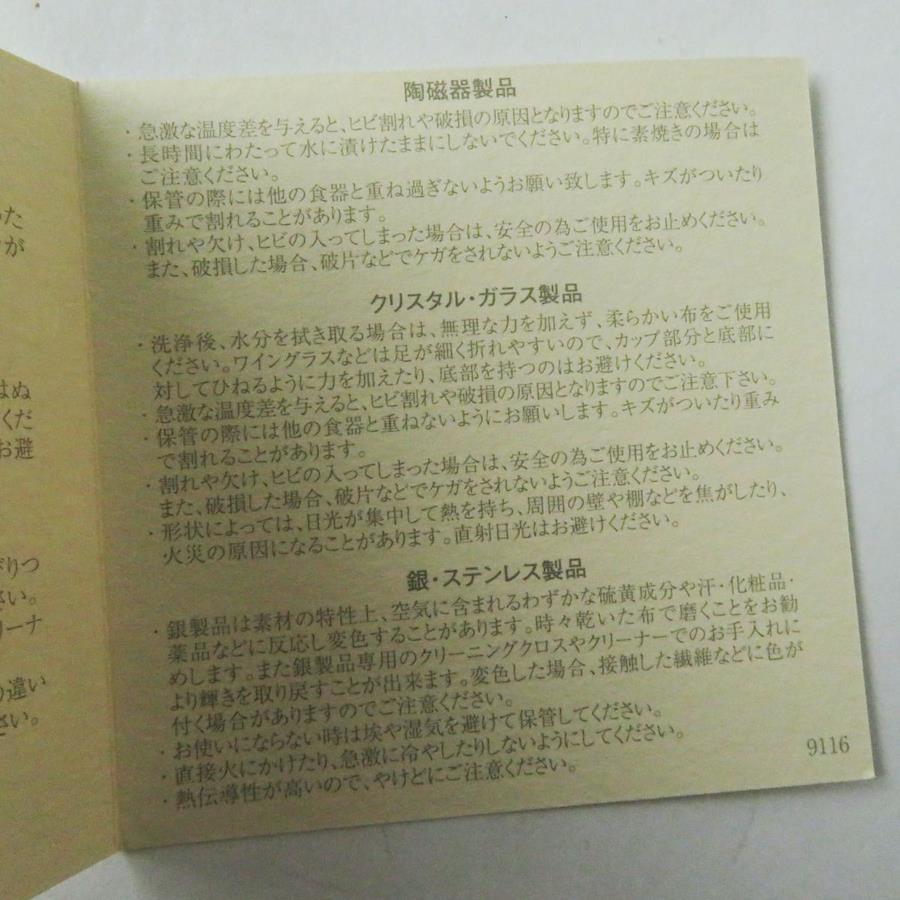 った
が
はぬ
くだ
お避
りつ
さい。
リーナ
の違い
さい。
陶磁器製品
・急激な温度差を与えると、ヒビ割れや破損の原因となりますのでご注意ください。
・長時間にわたって水に漬けたままにしないでください。特に素焼きの場合は
ご注意ください。
・保管の際には他の食器と重ね過ぎないようお願い致します。キズがついたり
重みで割れることがあります。
・割れや欠け、ヒビの入ってしまった場合は、安全の為ご使用をお止めください。
また、破損した場合、破片などでケガをされないようご注意ください。
クリスタル・ガラス製品
・洗浄後、水分を拭き取る場合は、無理な力を加えず、柔らかい布をご使用
ください。ワイングラスなどは足が細く折れやすいので、カップ部分と底部に
対してひねるように力を加えたり、底部を持つのはお避けください。
・急激な温度差を与えると、ヒビ割れや破損の原因となりますのでご注意下さい。
・保管の際には他の食器と重ねないようにお願いします。キズがついたり重み
で割れることがあります。
・割れや欠け、ヒビの入ってしまった場合は、安全の為ご使用をお止めください。
また、破損した場合、破片などでケガをされないようご注意ください。
・形状によっては、日光が集中して熱を持ち、周囲の壁や棚などを焦がしたり、
火災の原因になることがあります。直射日光はお避けください。
銀・ステンレス製品
・銀製品は素材の特性上、空気に含まれるわずかな硫黄成分や汗・化粧品・
薬品などに反応し変色することがあります。時々乾いた布で磨くことをお勧
めします。また銀製品専用のクリーニングクロスやクリーナーでのお手入れに
より輝きを取り戻すことが出来ます。変色した場合、接触した繊維などに色が
付く場合がありますのでご注意ください。
・お使いにならない時は埃や湿気を避けて保管してください。
・直接火にかけたり、急激に冷やしたりしないようにしてください。
・熱伝導性が高いので、やけどにご注意ください。
9116